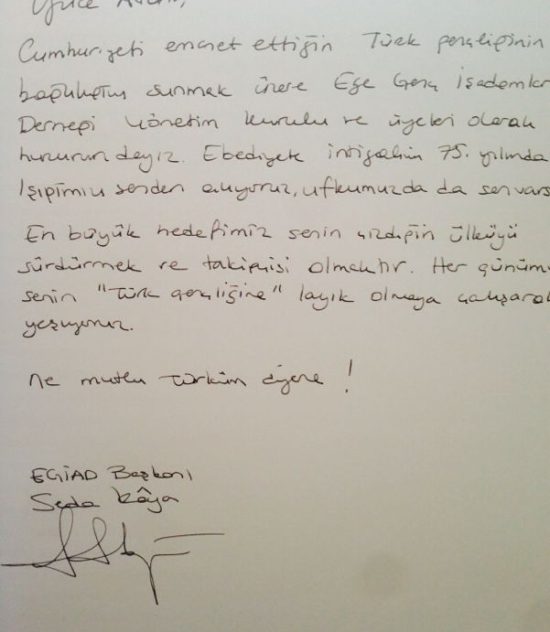 Yüce Atam,
Cumhuriyeti emanet ettiğin Türk gençliğinin
bağlılığını sunmak üzere Ege Genç İşadamları
Derneği Yönetim Kurulu ve üyeleri olarak
huzurundayız. Ebediyete intigalin 75. yılında
Işığımızı senden alıyoruz, ufkumuzda da sen vars
En büyük hedefimiz senin çizdiğin ülküyü
sürdürmek ve takipçisi olmaktır. Her günümü
senin "Türk gençliğine" layık olmaya çalışarak
yaşıyoruz.
Ne mutlu Türküm diyene!
EGİAD Başkanı
Seda Kâya